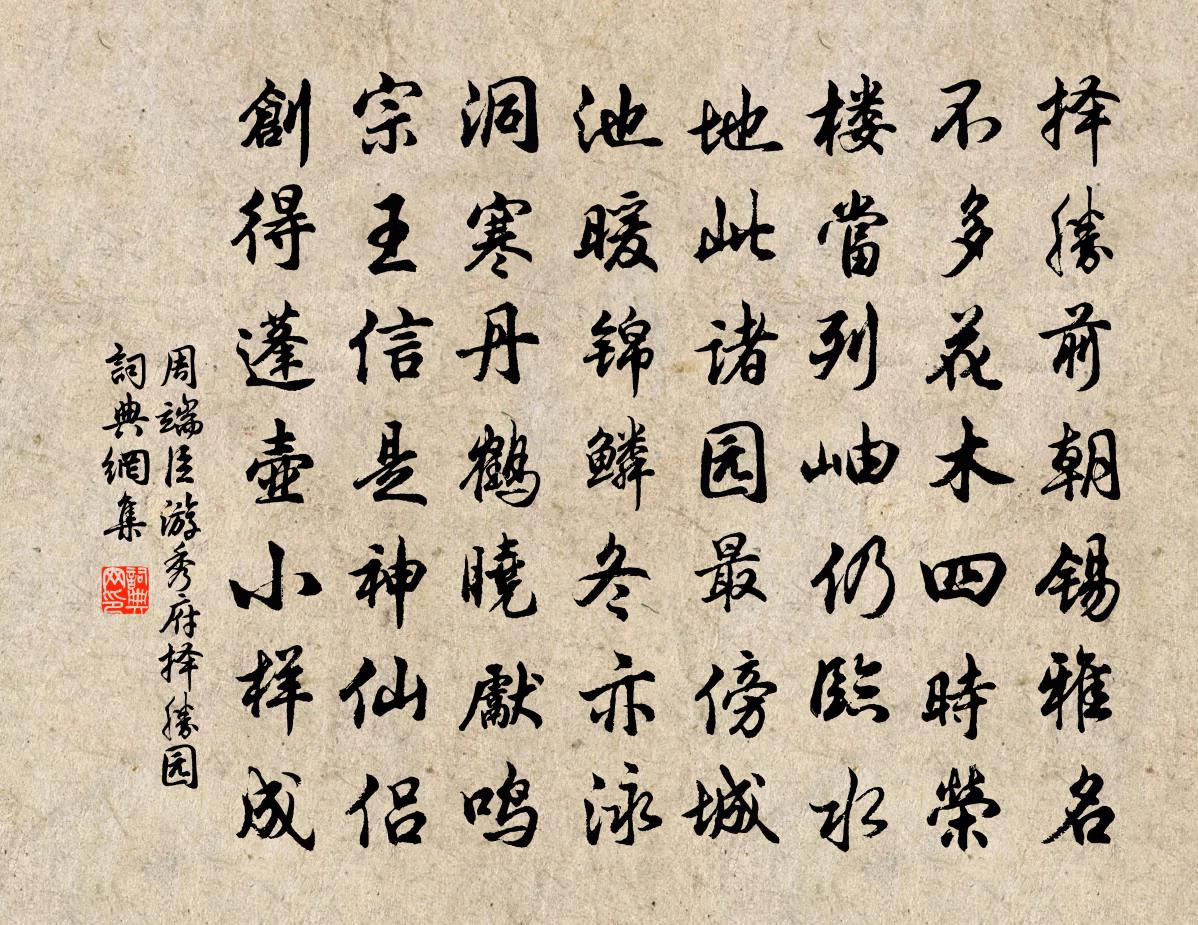 择勝前朝锡雅名
不多花木四時榮
楼當列岫仍臨水
地此诸园最傍城
池暖锦鳞冬亦泳
洞寒丹鹤曉獻鸣
宗王信是神仙侣
創得蓬壺小样成
周端臣游秀府择勝园
詞典網集
詞典
网印